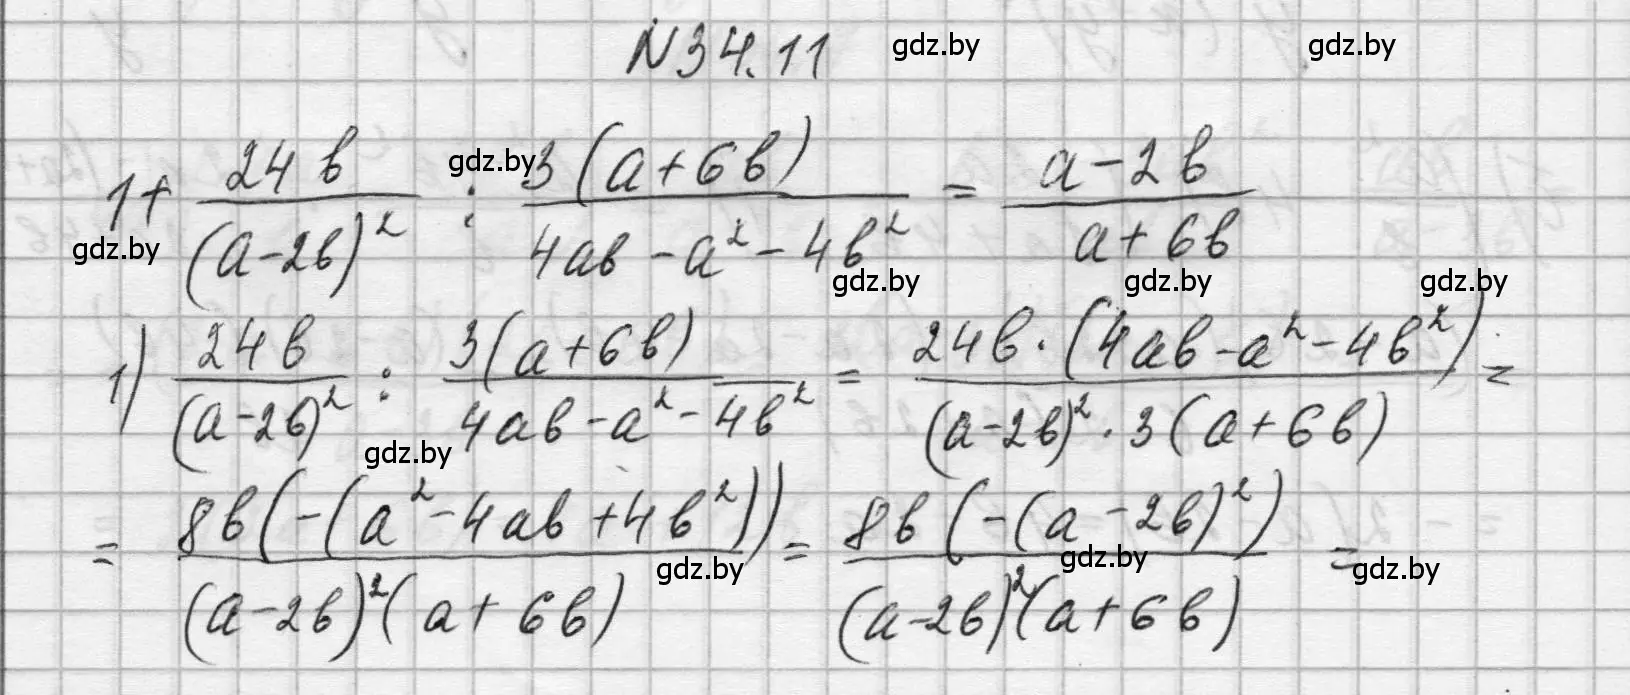 N34.11 gdz.by gdz.by
1+ 24b/(a-2b)² : 3(a+6b)/(4ab-a²-4b²) = (a-2b)/(a+6b)
gdz.by gdz.by gdz.by gdz.by gdz.by
1) 24b/(a-2b)² : 3(a+6b)/(4ab-a²-4b²) = 24b·(4ab-a²-4b²)/((a-2b)²·3(a+6b)) =
gdz.by
= 8b(-(a²-4ab+4b²))/((a-2b)²(a+6b)) = 8b(-(a-2b)²)/((a-2b)²(a+6b)) =
gdz.by gdz.by gdz.by